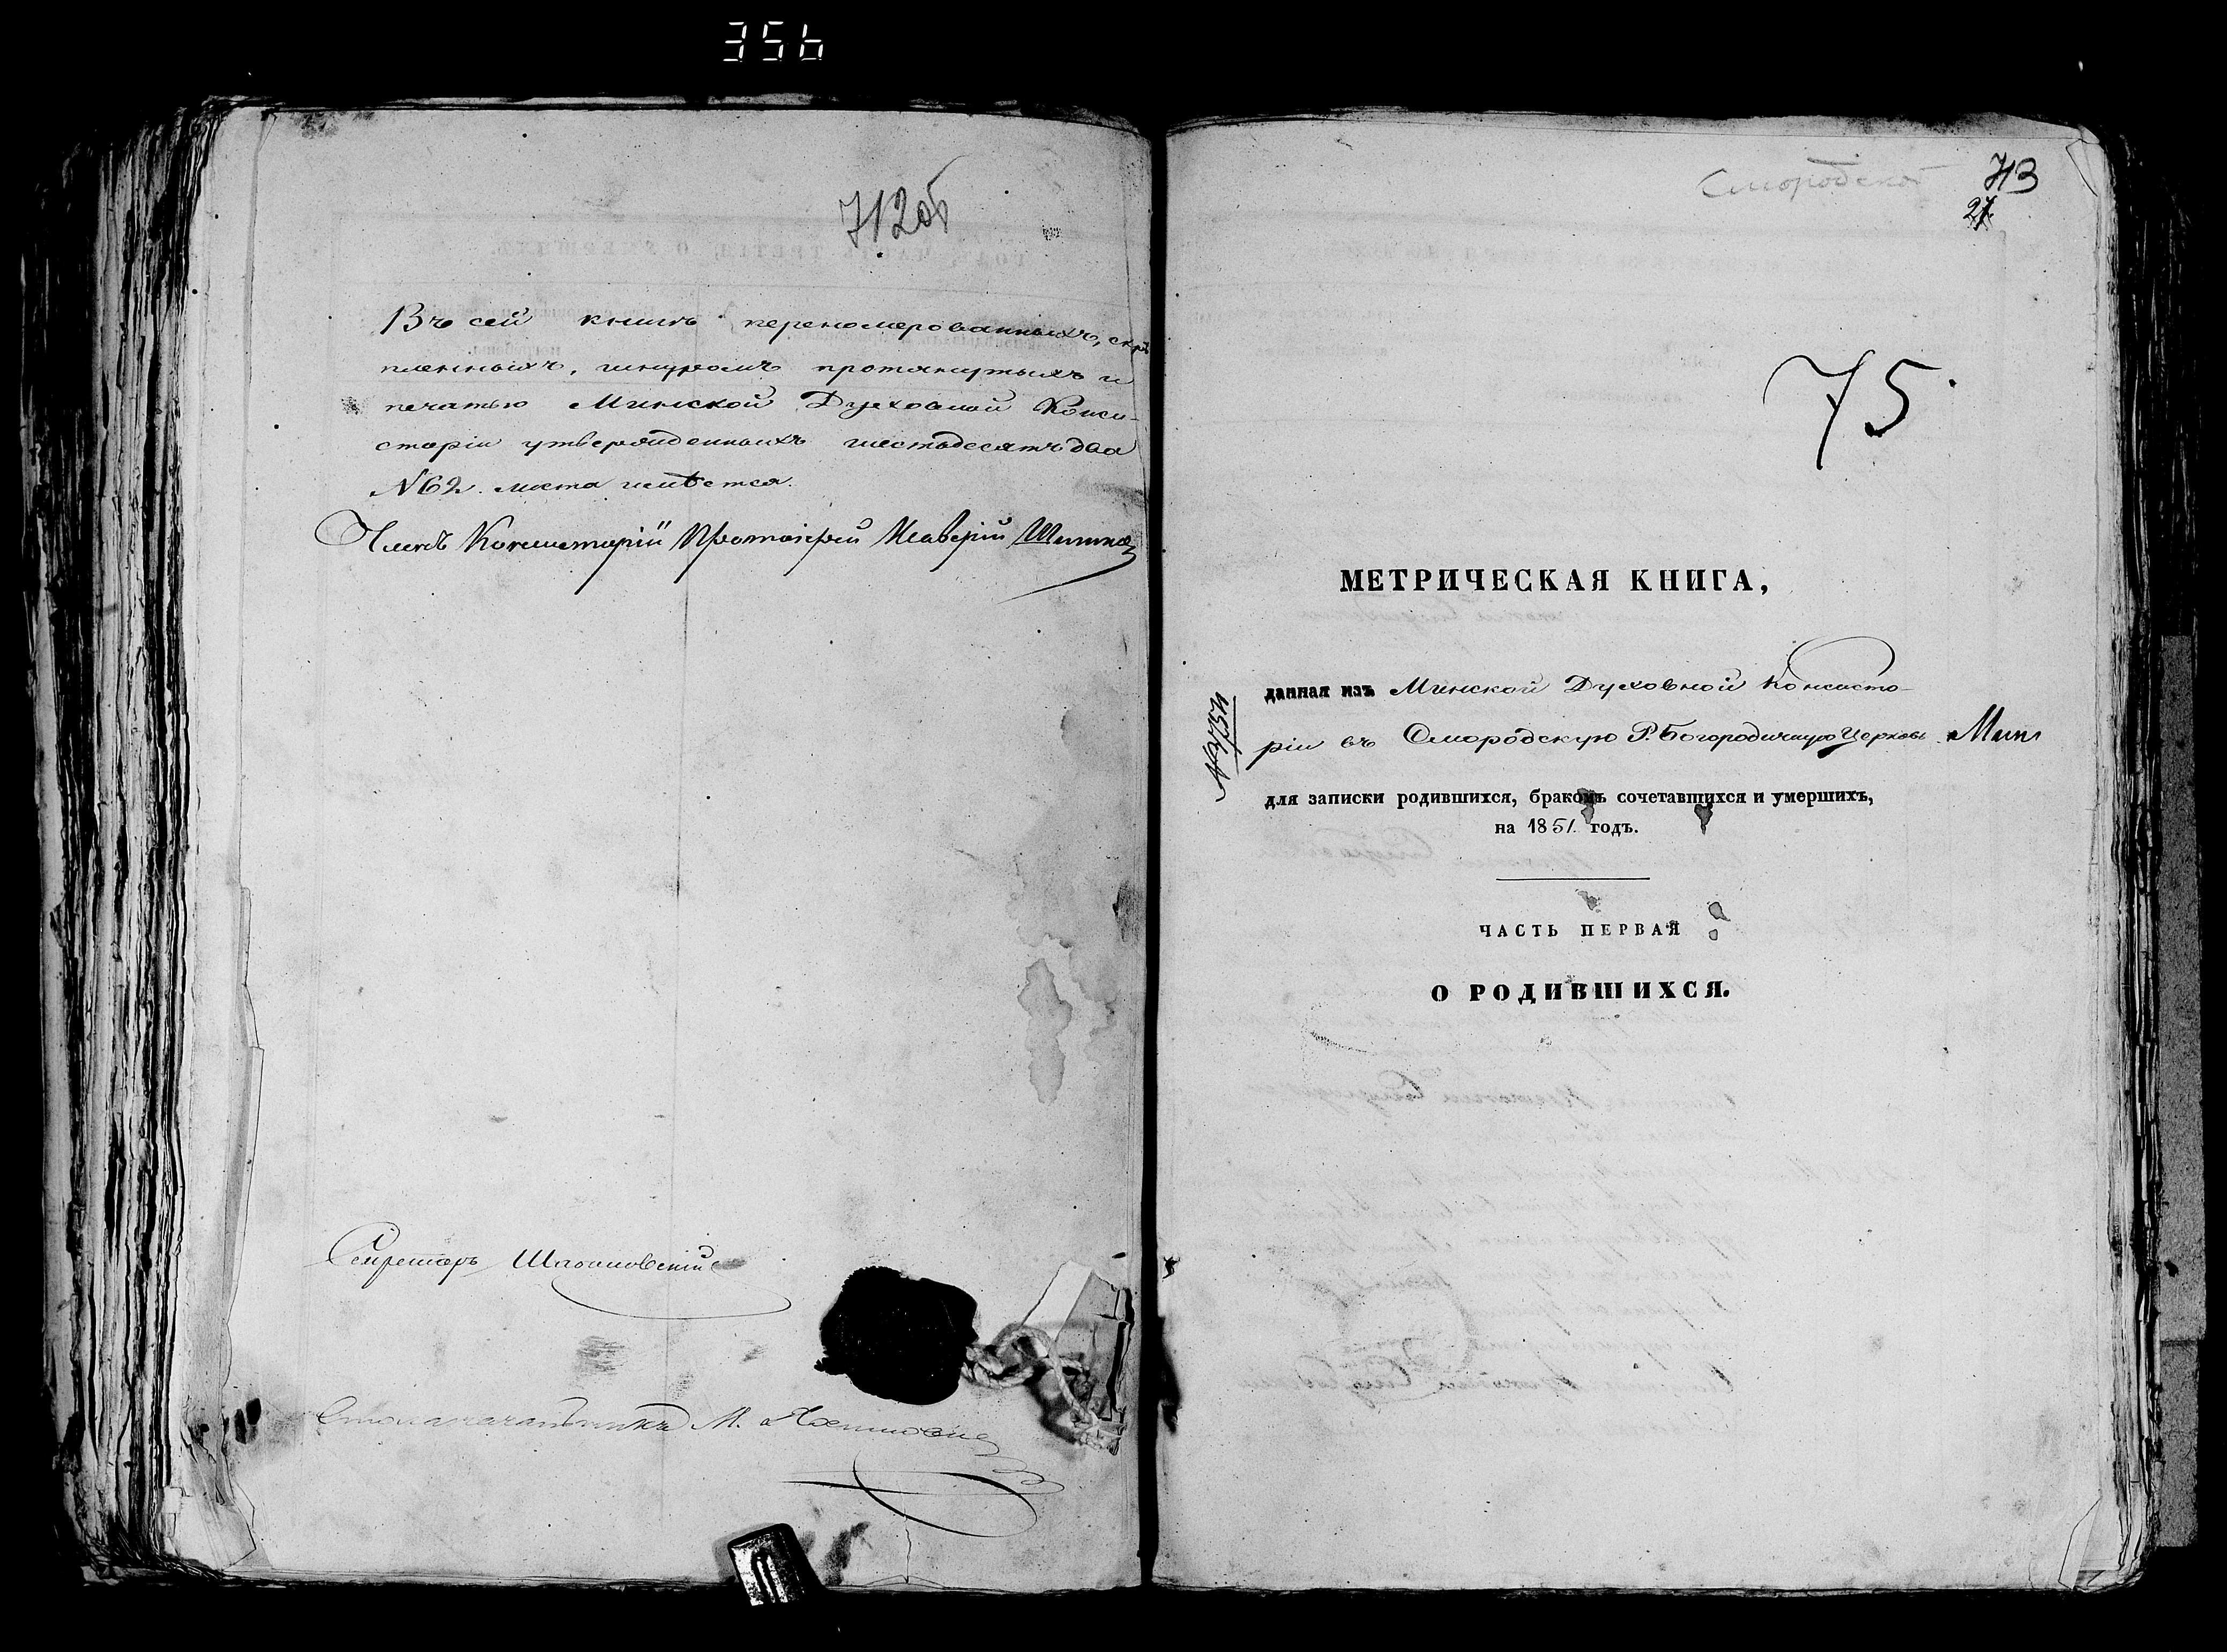 356
712об
Въ сей книгѣ перенумерованныхъ, скрѣ
пленныхъ, шнуромъ протянутыхъ и
печатью Минской Духовной Конси-
сторіи утвержденныхъ шестьдесятъ два
№ 62. листа имѣется.
Членъ Консисторіи Протоіерей
Секретарь
Столоначальникъ М.
Смородской
713
27
75.
МЕТРИЧЕСКАЯ КНИГА,
данная изъ Минской Духовной Консисто-
ріи въ Смородскую Р. Богородичную Церковь
для записки родившихся, бракомъ сочетавшихся и умершихъ,
на 1851. годъ.
ЧАСТЬ ПЕРВАЯ
О РОДИВШИХСЯ.